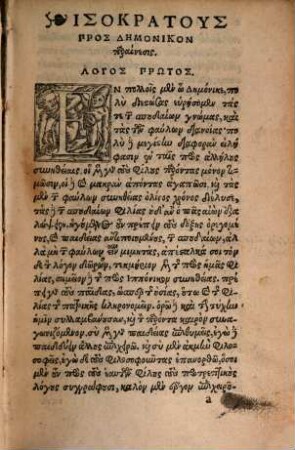 ΙΣΟΚΡΑΤΟΥΣ
ΠΡΟΣ ΔΗΜΟΝΙΚΟΝ
παραίνεσις.
ΛΟΓΟΣ ΠΡΩΤΟΣ.
ΕΝ πολλοῖς μὲν ὦ Δημόνικε, πο
λὺ διεστώσας εὑρήσομεν τάς
τε τῶν σπουδαίων γνώμας, καὶ
τὰς τῶν φαύλων διανοίας· πο
λὺ δὲ μεγίστην διαφορὰν εἰλή
φασιν ἐν ταῖς πρὸς ἀλλήλους
συνηθείαις. οἱ μὲν γὰρ τοὺς φίλους παρόντας μόνον τι
μῶσιν, οἱ δὲ καὶ μακρὰν ἀπόντας ἀγαπῶσι. καὶ τὰς μὲν
τῶν φαύλων συνηθείας ὀλίγος χρόνος διέλυσε,
τὰς δὲ τῶν σπουδαίων φιλίας οὐδ' ἂν ὁ πᾶς αἰὼν ἐξα
λείψειεν. ἡγούμενος οὖν πρέπειν τοὺς δόξης ὀρεγομέ
νους, καὶ παιδείας ἀντιποιουμένους, τῶν σπουδαίων, ἀλ
λὰ μὴ τῶν φαύλων εἶναι μιμητάς, ἀπέσταλκά σοι τόν
δε τὸν λόγον δῶρον, τεκμήριον μὲν τῆς πρὸς ὑμᾶς φι
λίας, σημεῖον δὲ τῆς πρὸς Ἱππόνικον συνηθείας. πρέ
πει γὰρ τοὺς παῖδας, ὥσπερ τῆς οὐσίας, οὕτω καὶ τῆς φι
λίας τῆς πατρικῆς κληρονομεῖν. ὁρῶ δὲ καὶ τὴν τύχην ἡ
μῖν συλλαμβάνουσαν, καὶ τὸν παρόντα καιρὸν συνα
γωνιζόμενον. σὺ μὲν γὰρ παιδείας ἐπιθυμεῖς, ἐγὼ δὲ
παιδεύειν ἄλλους ἐπιχειρῶ. καὶ σοὶ μὲν ἀκμὴ φιλο
σοφεῖν, ἐγὼ δὲ τοὺς φιλοσοφοῦντας ἐπανορθῶ. ὅσοι
μὲν οὖν πρὸς τοὺς ἑαυτῶν φίλους τοὺς προτρεπτικοὺς
λόγους συγγράφουσι, καλὸν μὲν ἔργον ἐπιχειροῦ-
a